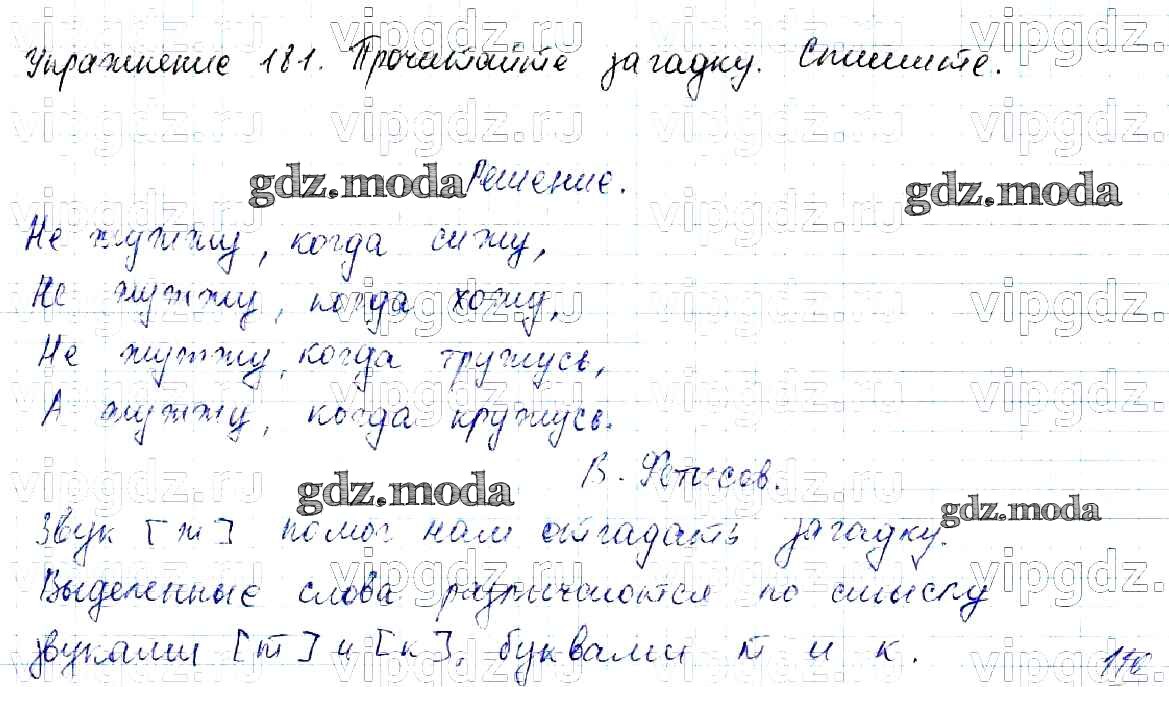 Упражнение 181. Прочитайте загадку. Спишите.
Решение.
Не жужжу, когда сижу,
Не жужжу, когда хожу,
Не жужжу, когда тружусь,
А жужжу, когда кружусь.
В. Фетисов.
Звук [ж] помог нам отгадать загадку.
Выделенные слова различаются по смыслу
звуками [т] и [к], буквами т и к.
gdz.moda
gdz.moda
gdz.moda
gdz.moda
vipgdz.ru